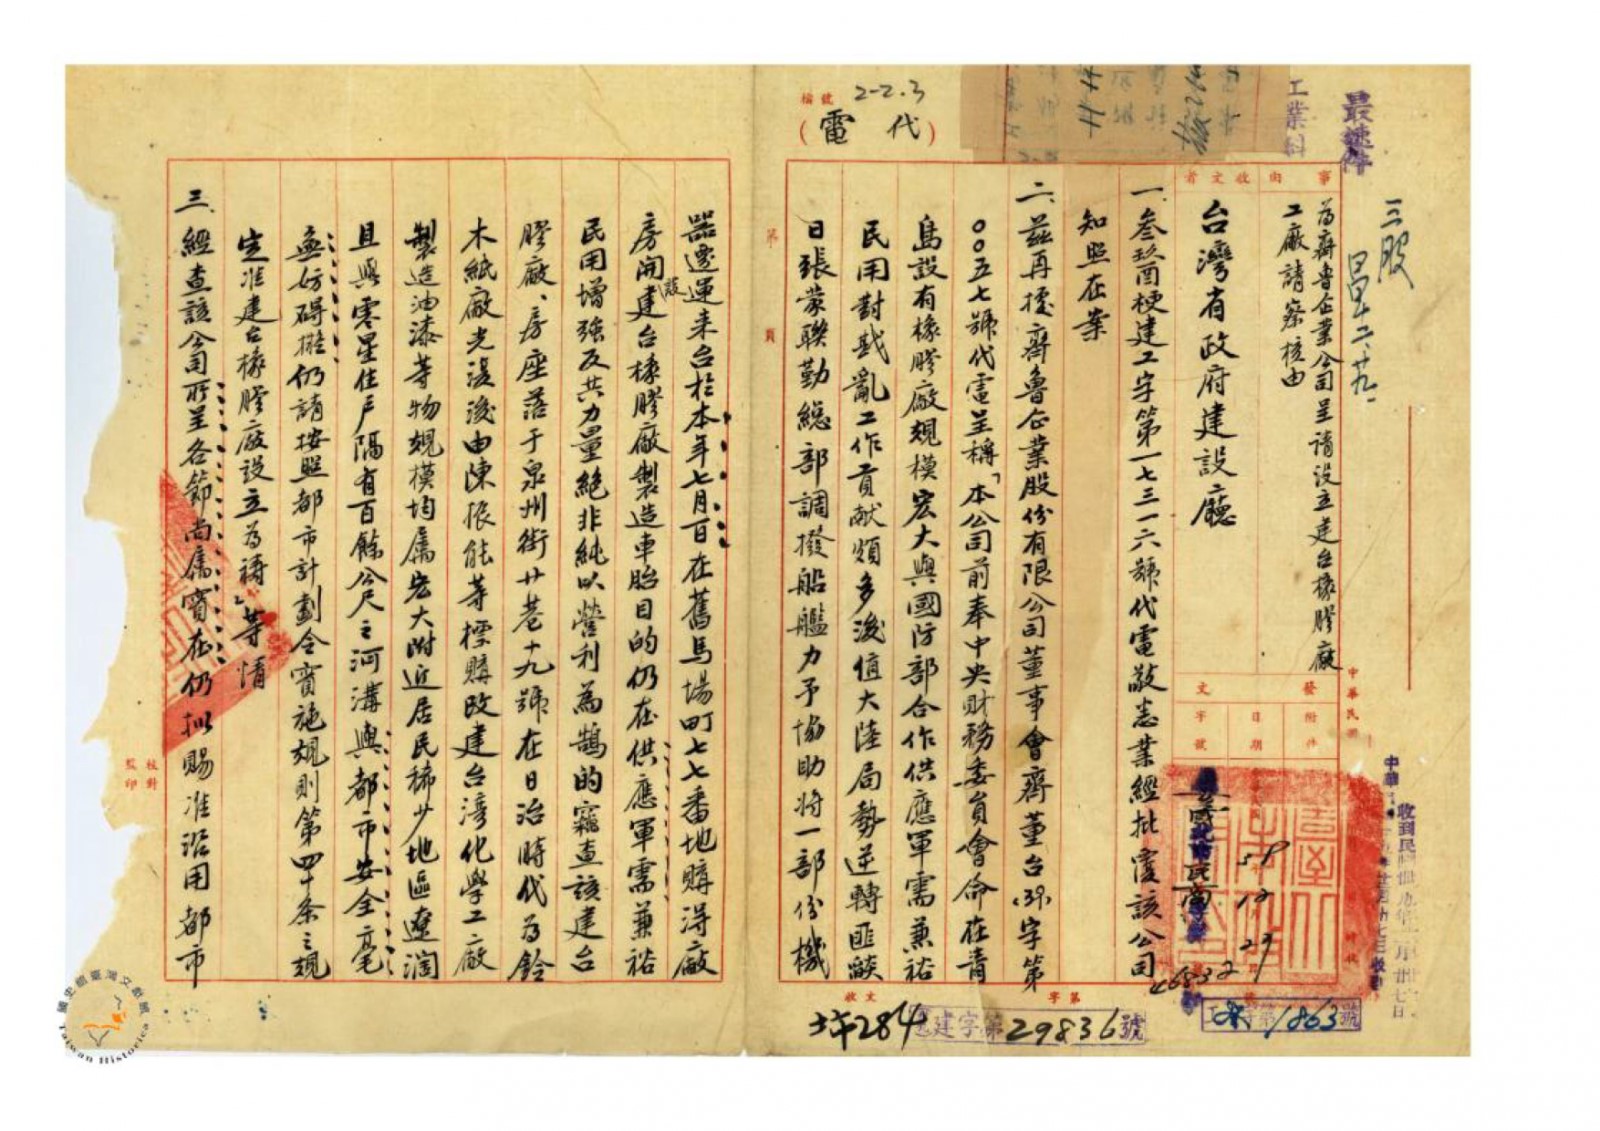 最速件
工業科
三股
2-2.3
檔號
(代電)
事由
向
收文者
為齊魯企業公司呈請設立建台橡膠廠
工廠請察核由
台灣省政府建設廳
發文
附件
日期
字號
中華民國
39
12
27
46832
一、叁玖酉梗建工字第一七三一六號代電敬悉業經批覆該公司
知照在案
二、茲再據齊魯企業股份有限公司董事會齊董台(39)字第
００五七號代電呈稱「本公司前奉中央財務委員會命在青
島設有橡膠廠規模宏大與國防部合作供應軍需兼裕
民用對戡亂工作貢献頗多浚值大陸局勢逆轉匪燄
日張蒙聯勤總部調撥船艦力予協助將一部份機
第 頁
器遷運来台於本年七月百在舊馬場町七七番地購得廠
房開設建台橡膠廠製造車胎目的仍在供應軍需兼裕
民用增強反共力量絕非純以營利為鵠的竊查該建台
膠廠、房座落于泉州街廿巷十九號在日治時代為鈴
木紙廠光復後由陳振能等標購改建台灣化學工廠
製造油漆等物規模均属宏大附近居民稀少地區遼濶
且與零星住戶隔有百餘公尺之河溝與都市安全毫
無妨碍擬仍請按照都市計劃令實施規則第四十条之規
定准建台橡膠廠設立為禱」等情
三、經查該公司所呈各節尚属實在仍擬賜准沿用都市
校對
監印
收文
字第
建字第29836號
1863號
國史館臺灣文獻館
Taiwan Historica